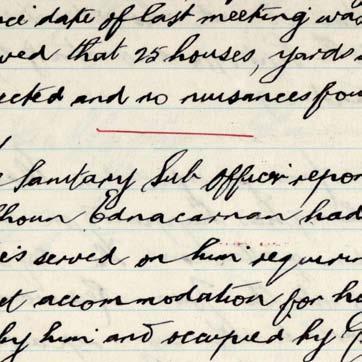 nce date of last meeting was
ved that 25 houses, yards
ected and no nuisances fou
Sanitary Sub officer repor
houn Ednacarnan had
es served on him requirin
et accommodation for ho
by him and occupied by